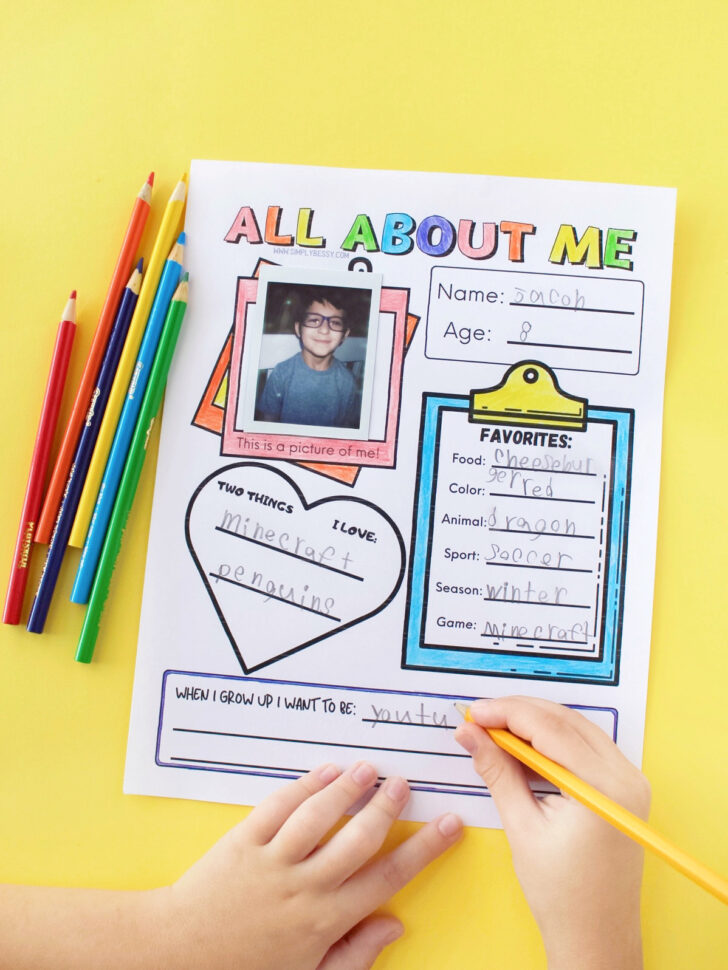 ALL ABOUT ME
WWW.SIMPLYBESSY.COM
Name: Jacob
Age: 8
This is a picture of me!
FAVORITES:
Food: Cheesebur
ger
Color: red
Animal: dragon
Sport: Soccer
Season: winter
Game: Minecraft
TWO THINGS
I LOVE:
Minecraft
penguins
WHEN I GROW UP I WANT TO BE: youtu